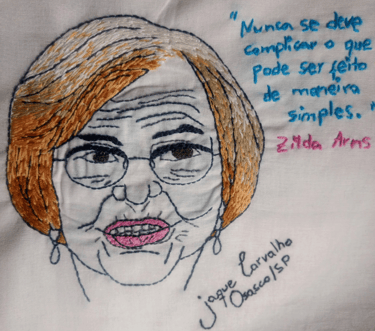 "Nunca se deve
complicar o que
pode ser feito
de maneira
simples."
Zilda Arns
jaque Carvalho
Osasco/SP